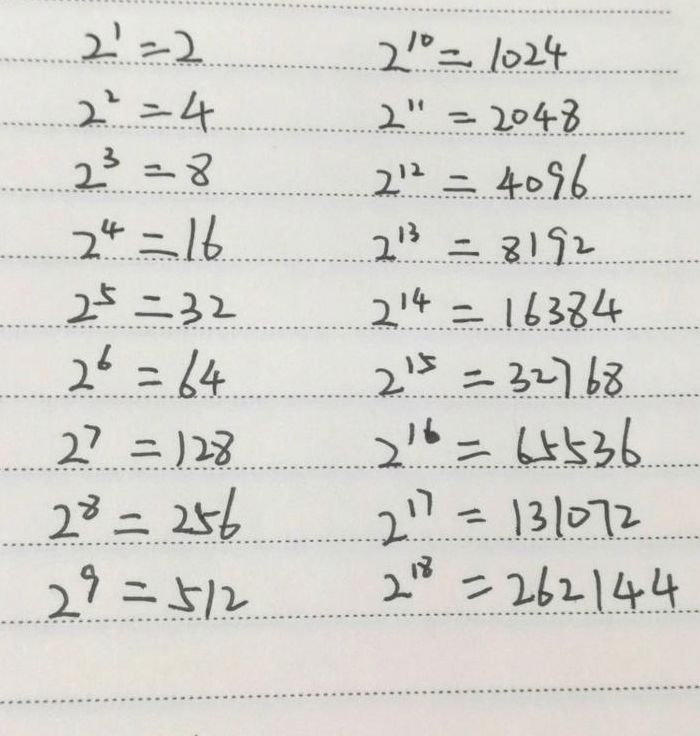 2¹ = 2
2² = 4
2³ = 8
2⁴ = 16
2⁵ = 32
2⁶ = 64
2⁷ = 128
2⁸ = 256
2⁹ = 512
2¹⁰ = 1024
2¹¹ = 2048
2¹² = 4096
2¹³ = 8192
2¹⁴ = 16384
2¹⁵ = 32768
2¹⁶ = 65536
2¹⁷ = 131072
2¹⁸ = 262144